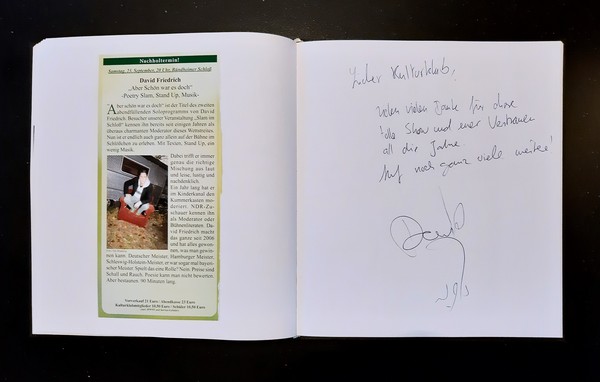 Nachholtermin!
Samstag, 23. September, 20 Uhr, Bürgelheimer Schloß
David Friedrich
„Aber Schön war es doch"
-Poetry Slam, Stand Up, Musik-
„Aber schön war es doch" ist der Titel des zweiten
abendfüllenden Soloprogramms von David
Friedrich. Besucher unserer Veranstaltung „Slam im
Schloß" kennen ihn bereits seit einigen Jahren als
überaus charmanten Moderator dieses Wettstreites.
Nun ist er endlich auch ganz allein auf der Bühne im
Schlößchen zu erleben. Mit Texten, Stand Up, ein
wenig Musik.
Dabei trifft er immer
genau die richtige
Mischung aus laut
und leise, lustig und
nachdenklich.
Ein Jahr lang hat er
im Kinderkanal den
Kummerkasten mo-
deriert. NDR-Zu-
schauer kennen ihn
als Moderator oder
Bühnenliteraten. Da-
vid Friedrich macht
das ganze seit 2006
und hat alles gewon-
nen, was man gewin-
nen kann. Deutscher Meister, Hamburger Meister,
Schleswig-Holstein-Meister, er war sogar mal bayeri-
scher Meister. Spielt das eine Rolle? Nein. Preise sind
Schall und Rauch. Poesie kann man nicht bewerten.
Aber bestaunen. 90 Minuten lang.
Vorverkauf 21 Euro - Abendkasse 23 Euro
Kulturklubmitglieder 18,50 Euro - Schüler 10,50 Euro
Lieber Kulturklub,
vielen vielen Dank für diese
tolle Show und euer Vertrauen
all die Jahre.
Auf noch ganz viele weitere!
David